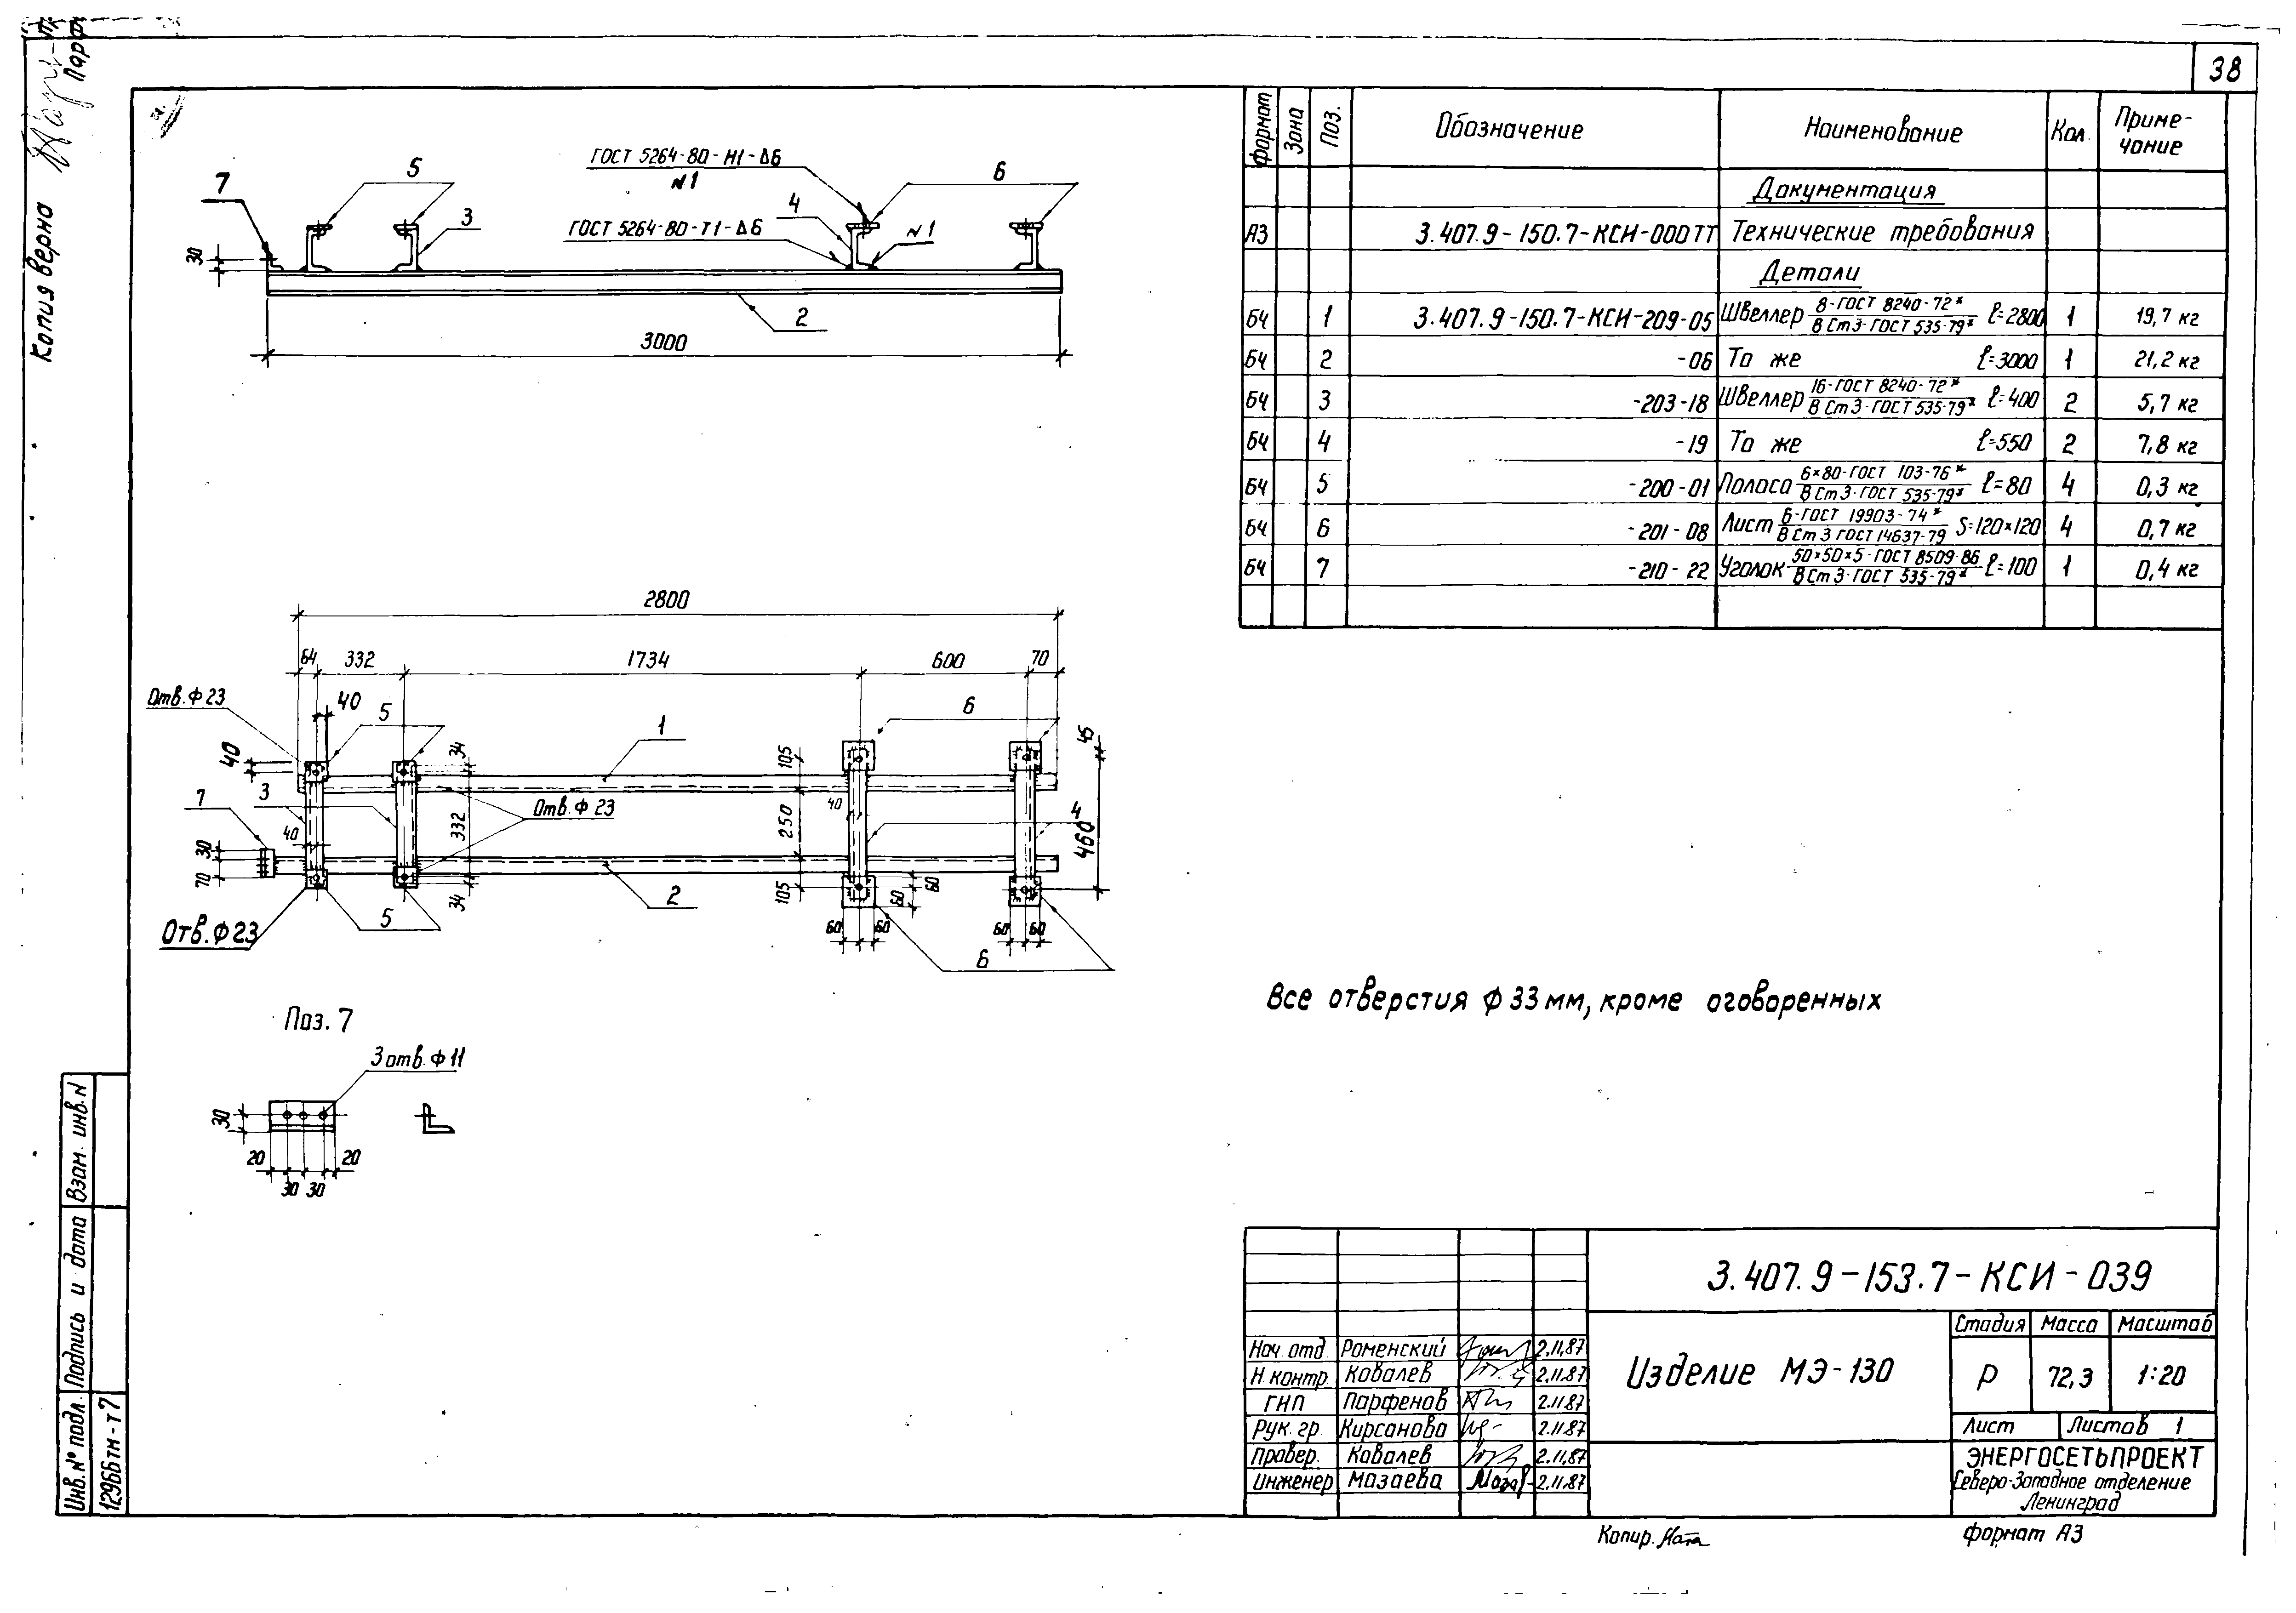 38
Копия верна
ГОСТ 5264-80-Н1-Δ6
№1
ГОСТ 5264-80-Т1-Δ6
№1
7
5
3
4
6
30
2
3000
2800
64 332 1734 600 70
Отв. ф 23
40
5
1
6
45
40
34
105
7
3
40
Отв. ф 23
332
250
40
4
460
30
70
34
105
60
60
2
5
Отв. ф 23
60 60
60 60
6
Поз. 7
3 отв. ф 11
30
20 20
30 30
Формат Зона Поз. Обозначение Наименование Кол. Приме-
чание
Документация
А3 3.407.9-150.7-КСИ-000ТТ Технические требования
Детали
БЧ 1 3.407.9-150.7-КСИ-209-05 Швеллер 8-ГОСТ 8240-72* / В Ст3-ГОСТ 535-79* ℓ=2800 1 19,7 кг
БЧ 2 -06 То же ℓ=3000 1 21,2 кг
БЧ 3 -203-18 Швеллер 16-ГОСТ 8240-72* / В Ст3-ГОСТ 535-79* ℓ=400 2 5,7 кг
БЧ 4 -19 То же ℓ=550 2 7,8 кг
БЧ 5 -200-01 Полоса 6×80-ГОСТ 103-76* / В Ст3-ГОСТ 535-79* ℓ=80 4 0,3 кг
БЧ 6 -201-08 Лист 6-ГОСТ 19903-74* / В Ст3 ГОСТ 14637-79 S=120×120 4 0,7 кг
БЧ 7 -210-22 Уголок 50×50×5-ГОСТ 8509-86 / В Ст3-ГОСТ 535-79* ℓ=100 1 0,4 кг
Все отверстия ф 33 мм, кроме оговоренных
3.407.9-153.7-КСИ-039
Нач. отд. Роменский 2.11.87
Н. контр. Ковалев 2.11.87
ГИП Парфенов 2.11.87
Рук. гр. Кирсанова 2.11.87
Провер. Ковалев 2.11.87
Инженер Мазаева 2.11.87
Изделие МЭ-130
Стадия Масса Масштаб
Р 72,3 1:20
Лист Листов 1
ЭНЕРГОСЕТЬПРОЕКТ
Северо-Западное отделение
Ленинград
Копир.
формат А3
Взам. инв. N
Подпись и дата
Инв. № подл.
12966тм-т7